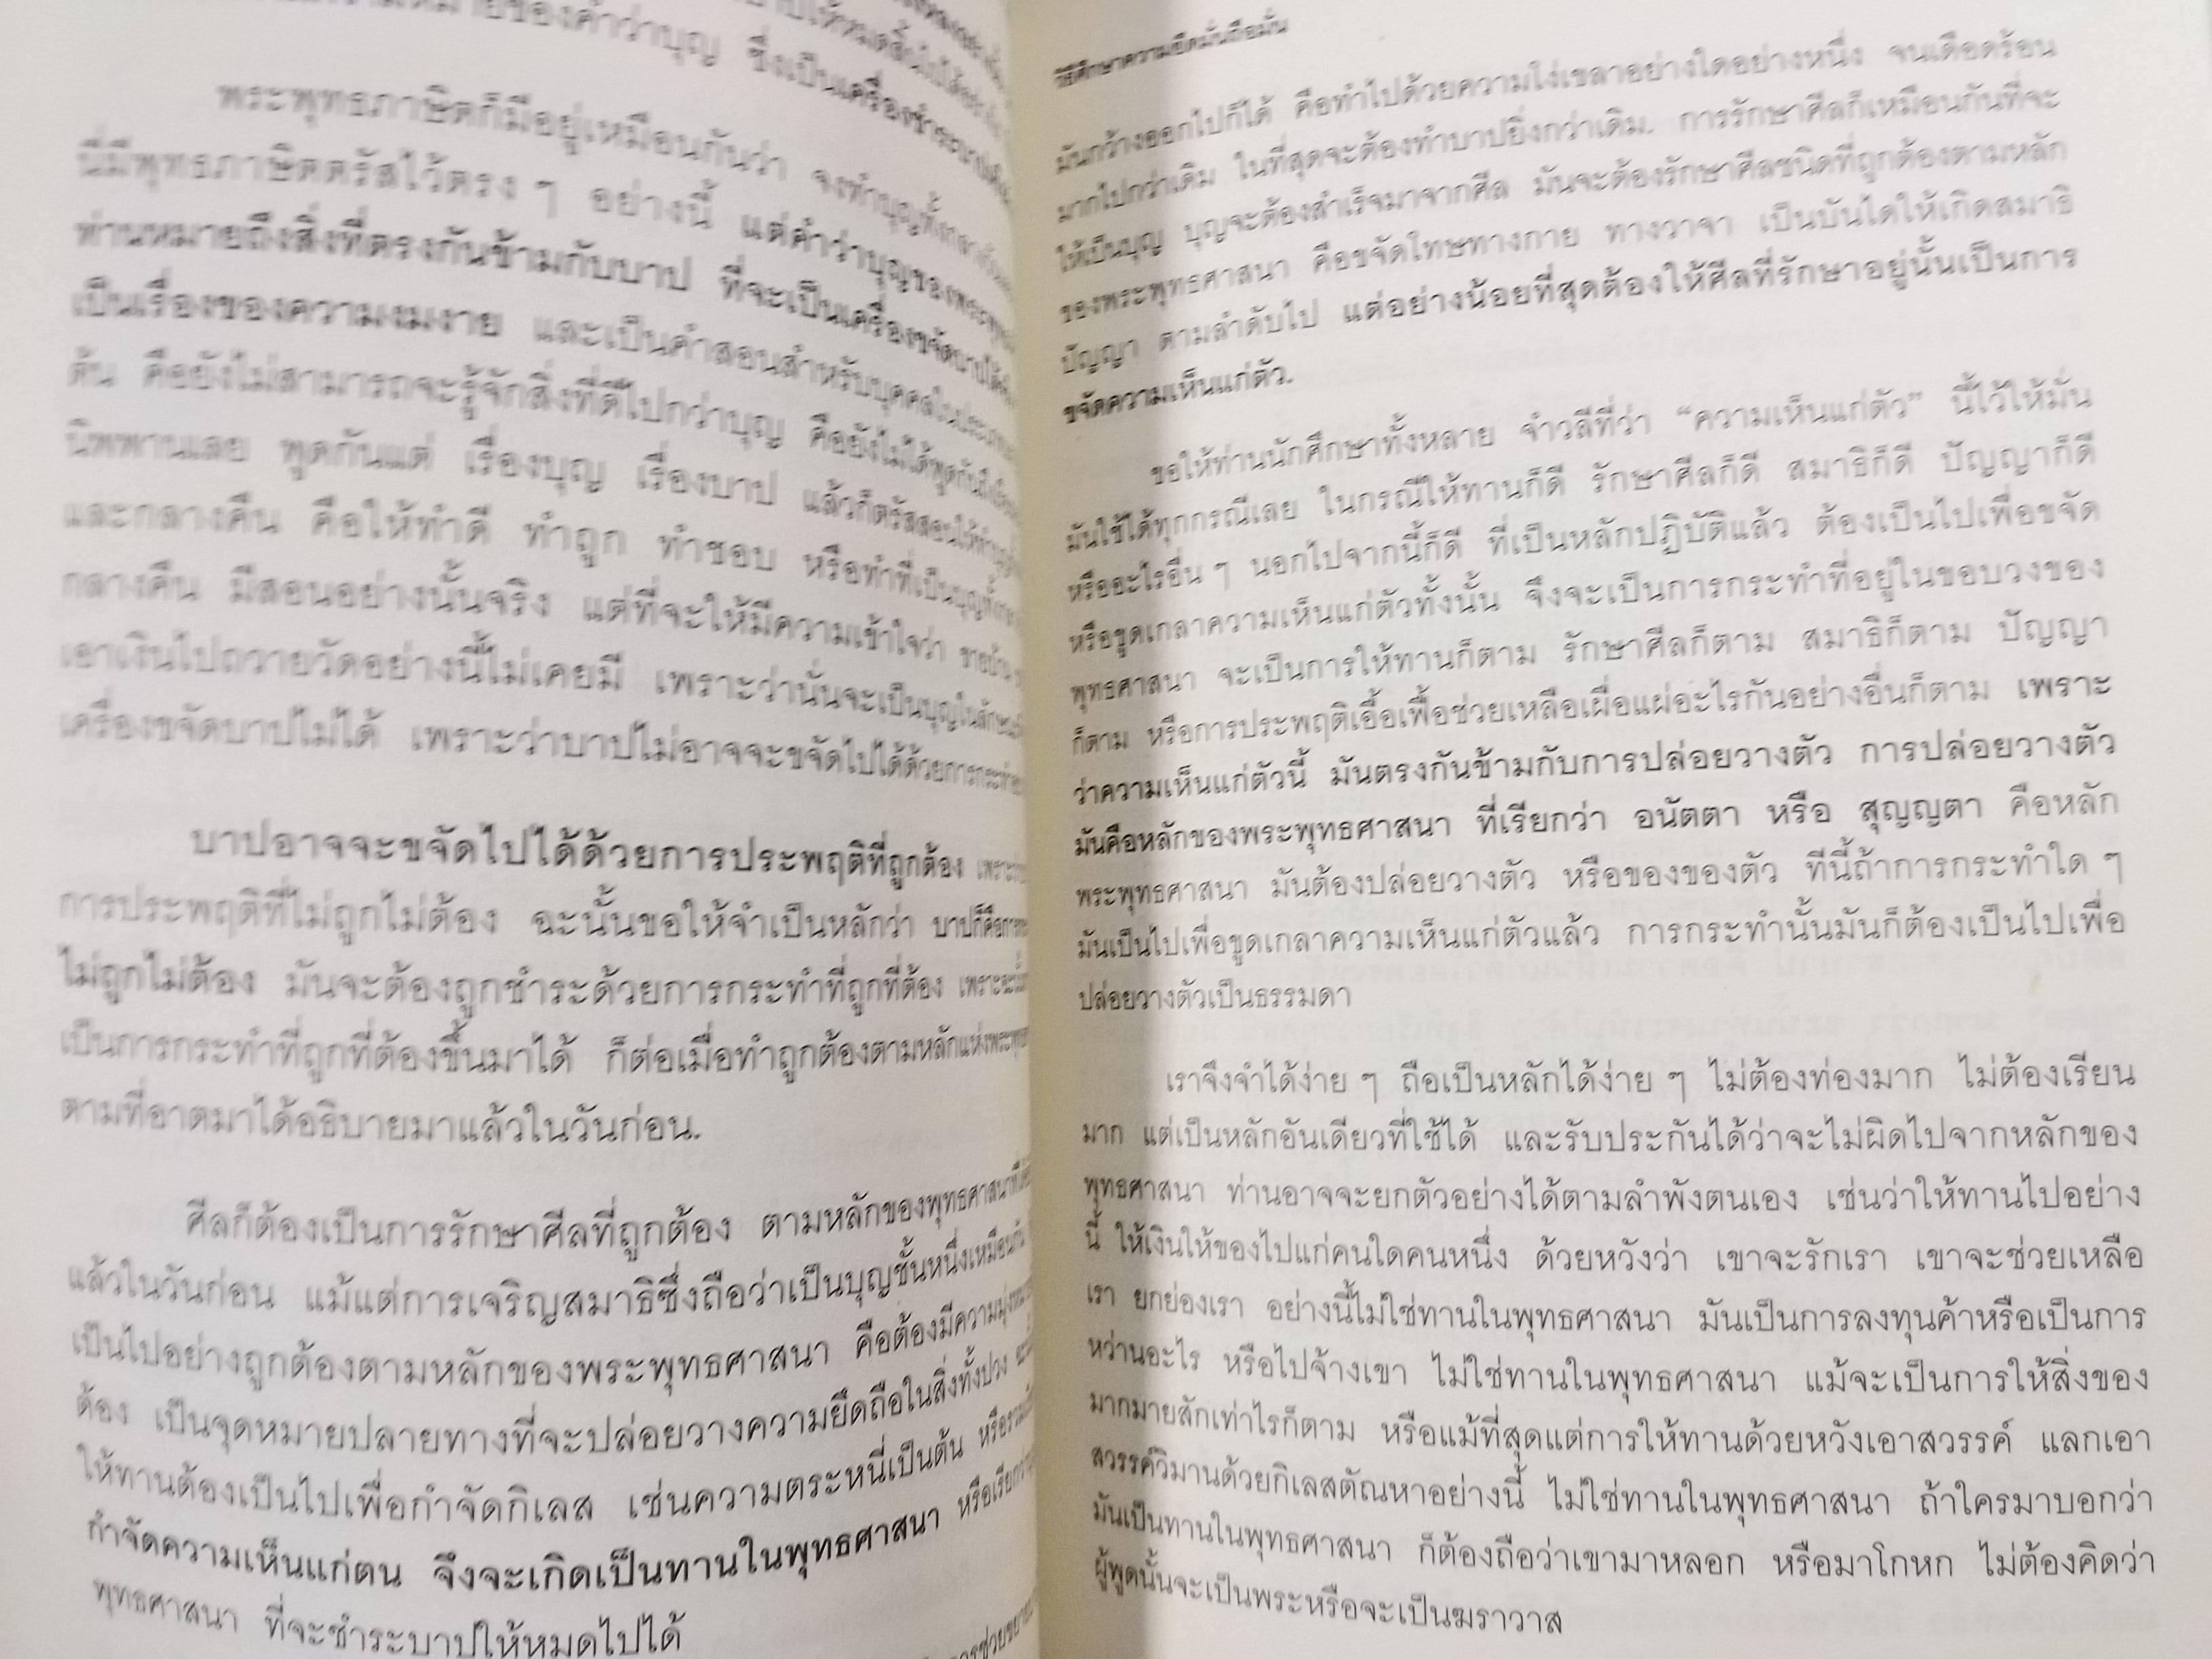 ความหมายของคำว่าบุญ ซึ่งเป็นเครื่องชำระบาป
พระพุทธภาษิตก็มีอยู่เหมือนกันว่า จงทำบุญทั้งกลางวัน
นี่มีพุทธภาษิตตรัสไว้ตรง ๆ อย่างนี้ แต่คำว่าบุญของพระพุทธ
ท่านหมายถึงสิ่งที่ตรงกันข้ามกับบาป ที่จะเป็นเครื่องขจัดบาปได้
เป็นเรื่องของความงมงาย และเป็นคำสอนสำหรับบุคคลในประเภท
ต้น คือยังไม่สามารถจะรู้จักสิ่งที่ดีไปกว่าบุญ คือยังไม่ได้พูดกันถึง
นิพพานเลย พูดกันแต่ เรื่องบุญ เรื่องบาป แล้วก็ตรัสสอนให้ทำบุญ
และกลางคืน คือให้ทำดี ทำถูก ทำชอบ หรือทำที่เป็นบุญทั้ง
กลางคืน มีสอนอย่างนั้นจริง แต่ที่จะให้มีความเข้าใจว่า
เอาเงินไปถวายวัดอย่างนี้ไม่เคยมี เพราะว่านั่นจะเป็นบุญใน
เครื่องขจัดบาปไม่ได้ เพราะว่าบาปไม่อาจจะขจัดไปได้ด้วยการกระทำ
บาปอาจจะขจัดไปได้ด้วยการประพฤติที่ถูกต้อง เพราะ
การประพฤติที่ไม่ถูกไม่ต้อง ฉะนั้นขอให้จำเป็นหลักว่า บาปก็คือการ
ไม่ถูกไม่ต้อง มันจะต้องถูกชำระด้วยการกระทำที่ถูกที่ต้อง เพราะฉะนั้น
เป็นการกระทำที่ถูกที่ต้องขึ้นมาได้ ก็ต่อเมื่อทำถูกต้องตามหลักแห่งพระพุทธ
ตามที่อาตมาได้อธิบายมาแล้วในวันก่อน.
ศีลก็ต้องเป็นการรักษาศีลที่ถูกต้อง ตามหลักของพุทธศาสนาที่
แล้วในวันก่อน แม้แต่การเจริญสมาธิซึ่งถือว่าเป็นบุญชั้นหนึ่งเหมือนกัน
เป็นไปอย่างถูกต้องตามหลักของพระพุทธศาสนา คือต้องมีความมุ่งหมาย
ต้อง เป็นจุดหมายปลายทางที่จะปล่อยวางความยึดถือในสิ่งทั้งปวง
ให้ทานต้องเป็นไปเพื่อกำจัดกิเลส เช่นความตระหนี่เป็นต้น หรือรวม
กำจัดความเห็นแก่ตน จึงจะเกิดเป็นทานในพุทธศาสนา หรือเรียกว่า
พุทธศาสนา ที่จะชำระบาปให้หมดไปได้
การช่วย
วิธีศึกษาความยึดมั่นถือมั่น
มันกว้างออกไปก็ได้ คือทำไปด้วยความโง่เขลาอย่างใดอย่างหนึ่ง จนเดือดร้อน
มากไปกว่าเดิม ในที่สุดจะต้องทำบาปยิ่งกว่าเดิม. การรักษาศีลก็เหมือนกันที่จะ
ให้เป็นบุญ บุญจะต้องสำเร็จมาจากศีล มันจะต้องรักษาศีลชนิดที่ถูกต้องตามหลัก
ของพระพุทธศาสนา คือขจัดโทษทางกาย ทางวาจา เป็นบันไดให้เกิดสมาธิ
ปัญญา ตามลำดับไป แต่อย่างน้อยที่สุดต้องให้ศีลที่รักษาอยู่นั้นเป็นการ
ขจัดความเห็นแก่ตัว.
ขอให้ท่านนักศึกษาทั้งหลาย จำวลีที่ว่า “ความเห็นแก่ตัว” นี้ไว้ให้มั่น
มันใช้ได้ทุกกรณีเลย ในกรณีให้ทานก็ดี รักษาศีลก็ดี สมาธิก็ดี ปัญญาก็ดี
หรืออะไรอื่น ๆ นอกไปจากนี้ก็ดี ที่เป็นหลักปฏิบัติแล้ว ต้องเป็นไปเพื่อขจัด
หรือขูดเกลาความเห็นแก่ตัวทั้งนั้น จึงจะเป็นการกระทำที่อยู่ในขอบวงของ
พุทธศาสนา จะเป็นการให้ทานก็ตาม รักษาศีลก็ตาม สมาธิก็ตาม ปัญญา
ก็ตาม หรือการประพฤติเอื้อเฟื้อช่วยเหลือเผื่อแผ่อะไรกันอย่างอื่นก็ตาม เพราะ
ว่าความเห็นแก่ตัวนี้ มันตรงกันข้ามกับการปล่อยวางตัว การปล่อยวางตัว
มันคือหลักของพระพุทธศาสนา ที่เรียกว่า อนัตตา หรือ สุญญตา คือหลัก
พระพุทธศาสนา มันต้องปล่อยวางตัว หรือของของตัว ทีนี้ถ้าการกระทำใด ๆ
มันเป็นไปเพื่อขูดเกลาความเห็นแก่ตัวแล้ว การกระทำนั้นมันก็ต้องเป็นไปเพื่อ
ปล่อยวางตัวเป็นธรรมดา
เราจึงจำได้ง่าย ๆ ถือเป็นหลักได้ง่าย ๆ ไม่ต้องท่องมาก ไม่ต้องเรียน
มาก แต่เป็นหลักอันเดียวที่ใช้ได้ และรับประกันได้ว่าจะไม่ผิดไปจากหลักของ
พุทธศาสนา ท่านอาจจะยกตัวอย่างได้ตามลำพังตนเอง เช่นว่าให้ทานไปอย่าง
นี้ ให้เงินให้ของไปแก่คนใดคนหนึ่ง ด้วยหวังว่า เขาจะรักเรา เขาจะช่วยเหลือ
เรา ยกย่องเรา อย่างนี้ไม่ใช่ทานในพุทธศาสนา มันเป็นการลงทุนค้าหรือเป็นการ
หว่านอะไร หรือไปจ้างเขา ไม่ใช่ทานในพุทธศาสนา แม้จะเป็นการให้สิ่งของ
มากมายสักเท่าไรก็ตาม หรือแม้ที่สุดแต่การให้ทานด้วยหวังเอาสวรรค์ แลกเอา
สวรรค์วิมานด้วยกิเลสตัณหาอย่างนี้ ไม่ใช่ทานในพุทธศาสนา ถ้าใครมาบอกว่า
มันเป็นทานในพุทธศาสนา ก็ต้องถือว่าเขามาหลอก หรือมาโกหก ไม่ต้องคิดว่า
ผู้พูดนั้นจะเป็นพระหรือจะเป็นฆราวาส